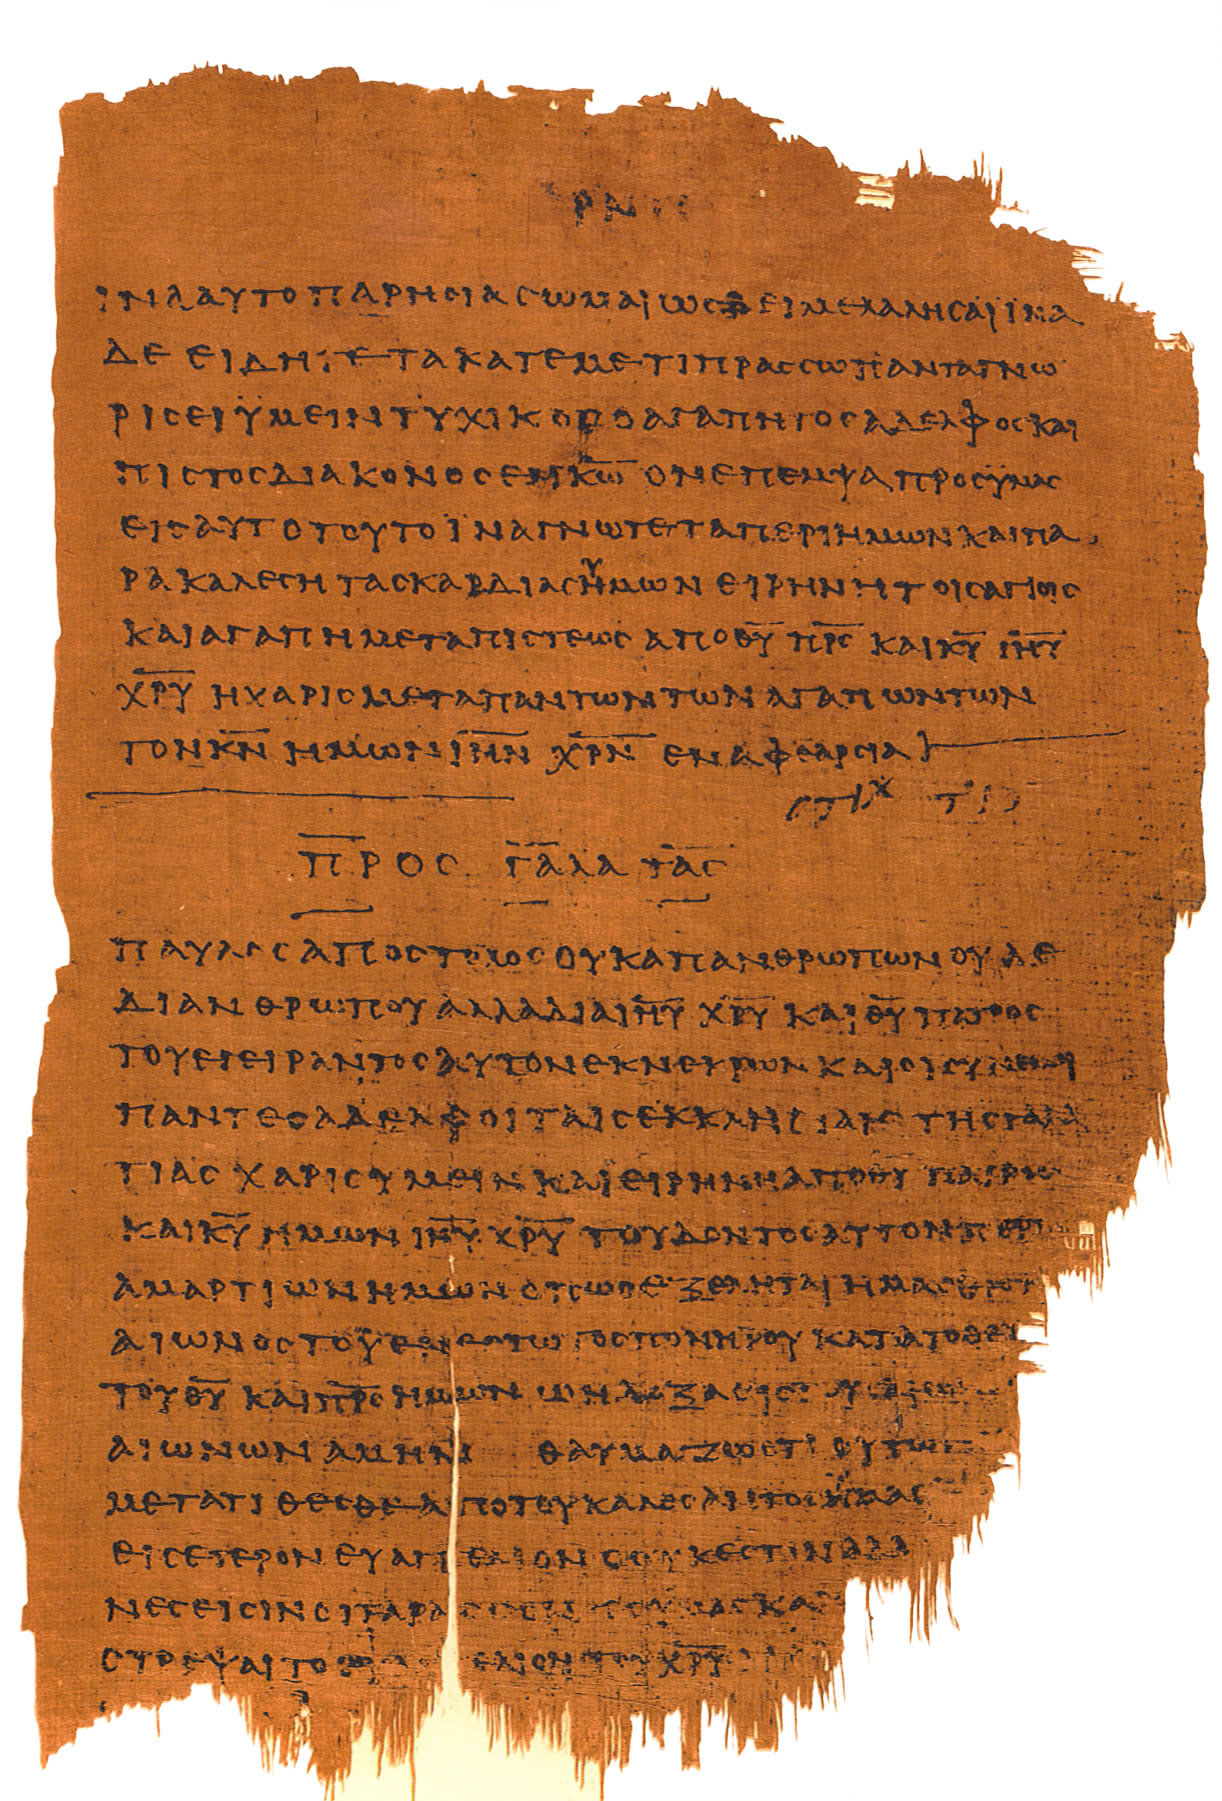 ΡΝ
ΙΝΑ ΑΥΤΟ ΠΑΡΗϹΙΑϹΩΜΑΙ ΩϹ ΔΕΙ ΜΕ ΛΑΛΗϹΑΙ ΪΝΑ
ΔΕ ΕΙΔΗΤΕ ΤΑ ΚΑΤ ΕΜΕ ΤΙ ΠΡΑϹϹΩ ΠΑΝΤΑ ΓΝΩ
ΡΙϹΕΙ ΫΜΕΙΝ ΤΥΧΙΚΟϹ Ο ΑΓΑΠΗΤΟϹ ΑΔΕΛΦΟϹ ΚΑΙ
ΠΙϹΤΟϹ ΔΙΑΚΟΝΟϹ ΕΝ Κ̅Ω̅ ΟΝ ΕΠΕΜΨΑ ΠΡΟϹ ΫΜΑϹ
ΕΙϹ ΑΥΤΟ ΤΟΥΤΟ ΪΝΑ ΓΝΩΤΕ ΤΑ ΠΕΡΙ ΗΜΩΝ ΚΑΙ ΠΑ
ΡΑΚΑΛΕϹΗ ΤΑϹ ΚΑΡΔΙΑϹ ΗΥΜΩΝ ΕΙΡΗΝΗ ΤΟΙϹ ΑΓΙΟΙϹ
ΚΑΙ ΑΓΑΠΗ ΜΕΤΑ ΠΙϹΤΕΩϹ ΑΠΟ Θ̅Υ̅ Π̅Ρ̅Ϲ̅ ΚΑΙ Κ̅Υ̅ Ι̅Η̅Υ̅
Χ̅Ρ̅Υ̅ Η ΧΑΡΙϹ ΜΕΤΑ ΠΑΝΤΩΝ ΤΩΝ ΑΓΑΠΩΝΤΩΝ
ΤΟΝ Κ̅Ν̅ ΗΜΩΝ Ι̅Η̅Ν̅ Χ̅Ρ̅Ν̅ ΕΝ ΑΦΘΑΡϹΙΑ
ϹΤΙΧ
ΠΡΟϹ ΓΑΛΑΤΑϹ
ΠΑΥΛΟϹ ΑΠΟϹΤΟΛΟϹ ΟΥΚ ΑΠ ΑΝΘΡΩΠΩΝ ΟΥΔΕ
ΔΙ ΑΝΘΡΩΠΟΥ ΑΛΛΑ ΔΙΑ Ι̅Η̅Υ̅ Χ̅Ρ̅Υ̅ ΚΑΙ Θ̅Υ̅ ΠΑΤΡΟϹ
ΤΟΥ ΕΓΕΙΡΑΝΤΟϹ ΑΥΤΟΝ ΕΚ ΝΕΚΡΩΝ ΚΑΙ ΟΙ ϹΥΝ ΕΜΟΙ
ΠΑΝΤΕϹ ΑΔΕΛΦΟΙ ΤΑΙϹ ΕΚΚΛΗϹΙΑΙϹ ΤΗϹ ΓΑΛΑ
ΤΙΑϹ ΧΑΡΙϹ ΥΜΕΙΝ ΚΑΙ ΕΙΡΗΝΗ ΑΠΟ ΘΥ ΠΑΤΡΟϹ
ΚΑΙ Κ̅Υ̅ ΗΜΩΝ Ι̅Η̅Υ̅ Χ̅Ρ̅Υ̅ ΤΟΥ ΔΟΝΤΟϹ ΑΥΤΟΝ ΠΕΡΙ
ΑΜΑΡΤΙΩΝ ΗΜΩΝ ΟΠΩϹ ΕΞΕΛΗΤΑΙ ΗΜΑϹ ΕΚ ΤΟΥ
ΑΙΩΝΟϹ ΤΟΥ ΕΝΕϹΤΩΤΟϹ ΠΟΝΗΡΟΥ ΚΑΤΑ ΤΟ ΘΕΛ
ΤΟΥ Θ̅Υ̅ ΚΑΙ Π̅Ρ̅Ϲ̅ ΗΜΩΝ Ω Η ΔΟΞΑ ΕΙϹ
ΑΙΩΝΩΝ ΑΜΗΝ ΘΑΥΜΑΖΩ ΟΤΙ ΟΥΤΩϹ
ΜΕΤΑΤΙΘΕϹΘΕ ΑΠΟ ΤΟΥ ΚΑΛΕϹΑΝΤΟϹ ΫΜΑϹ
ΕΙϹ ΕΤΕΡΟΝ ΕΥΑΓΓΕΛΙΟΝ Ο ΟΥΚ ΕϹΤΙΝ ΑΛΛ
ΝΕϹ ΕΙϹΙΝ ΟΙ ΤΑΡΑϹ ΥΜΑϹ ΚΑΙ
ϹΤΡΕΨΑΙ ΤΟ ΕΛΙΟΝ ΤΟΥ Χ̅Ρ̅Υ̅